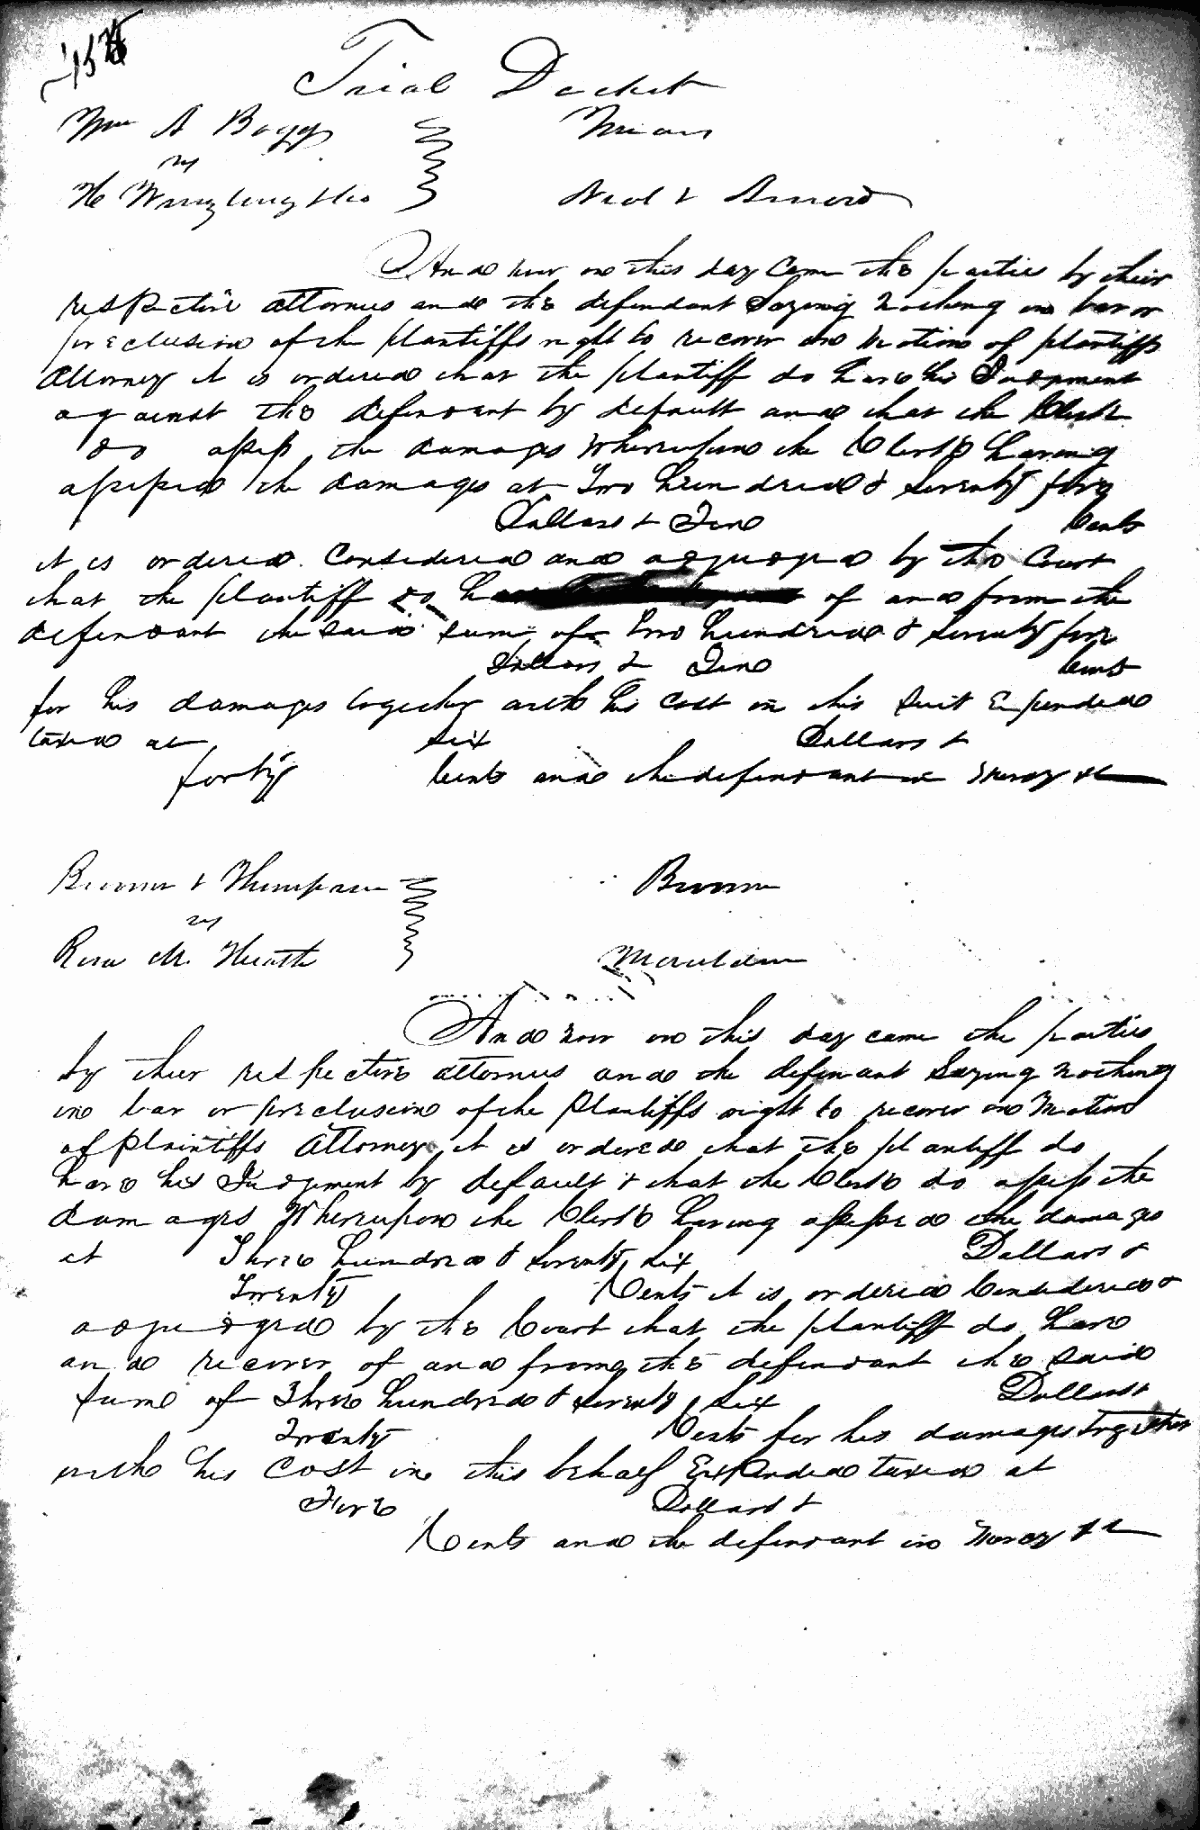 Trial Docket
Wm A Boggs
vs
Neal & Arnord
And now on this day came the parties by their
respective attornies and the defendant Saying nothing in bar or
preclusion of the plantiffs right to recover on motion of plantiffs
Attorney it is ordered that the plantiff do have his Judgment
against the defendant by default and that the Clerk
do assess the damages Whereupon the Clerk having
assessed the damages at Two hundred & seventy five
Dollars & Five Cents
it is ordered Considered and adjudged by the Court
that the plantiff do have of and from the
defendant the said sum of Two hundred & seventy five
Dollars & Five Cents
for his damages together with his cost in this Suit Expended
taxed at Six Dollars &
forty Cents and the defendant in mercy &c
Brown & Thompson Brown
vs
Rosa M. Heath
And now on this day came the parties
by their respective attornies and the defenant Saying nothing
in bar or preclusion of the Plantiffs right to recover on Motion
of Plaintiffs Attorney it is ordered that the plantiff do
have his Judgment by default & that the Clerk do assess the
damages Whereupon the Clerk having assessed the damages
at Three hundred & Seventy Six Dollars &
Twenty Cents it is ordered Considered &
adjudged by the Court that the plantiff do have
and recover of and from the defendant the said
Sum of Three hundred & seventy Six Dollars &
Twenty Cents for his damages together
with his Cost in this behalf Expended taxed at
Five Dollars &
Cents and the defendant in mercy &c